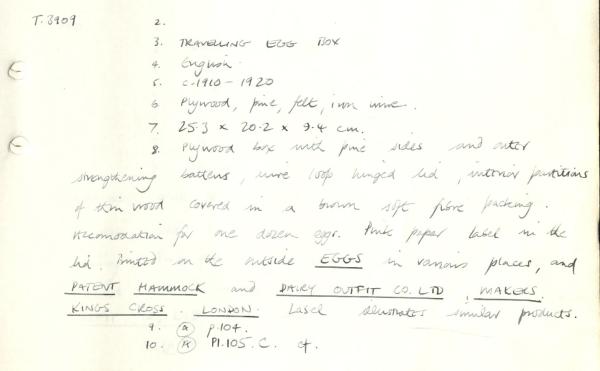 T.3909 2.
3. TRAVELLING EGG BOX
4. English.
5. c.1910 - 1920
6 Plywood, pine, felt, iron wire.
7. 25.3 x 20.2 x 9.4 cm.
8. Plywood box with pine sides and outer
strengthening battens, wire loop hinged lid, interior partitions
of thin wood covered in a brown soft fibre packing.
Accomodation for one dozen eggs. Pink paper label in the
lid. Printed on the outside EGGS in various places, and
PATENT HAMMOCK and DAIRY OUTFIT CO. LTD, MAKERS.
KINGS CROSS. LONDON. Label illustrates similar products.
9. a p.104.
10. Pl.105.C. cf.